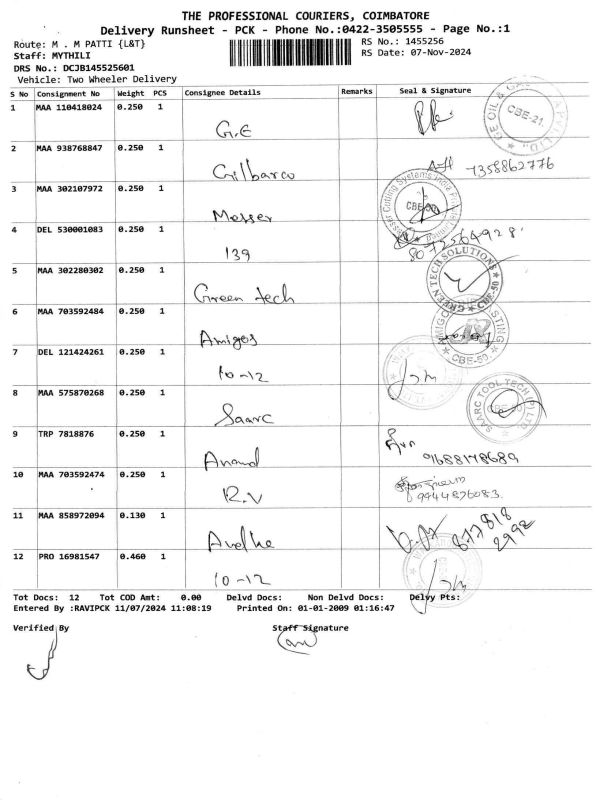 THE PROFESSIONAL COURIERS, COIMBATORE
Delivery Runsheet - PCK - Phone No.:0422-3505555 - Page No.:1
Route: M . M PATTI {L&T}
RS No.: 1455256
Staff: MYTHILI
RS Date: 07-Nov-2024
DRS No.: DCJB145525601
Vehicle: Two Wheeler Delivery
S No Consignment No Weight PCS Consignee Details Remarks Seal & Signature
1 MAA 110418024 0.250 1
G.E
CBE-21.
2 MAA 938768847 0.250 1
Gilbarco
7358862776
3 MAA 302107972 0.250 1
Messer
4 DEL 530001083 0.250 1
139
8073564928
5 MAA 302280302 0.250 1
Green tech
GREEN TECH SOLUTIONS
6 MAA 703592484 0.250 1
Amigos
CBE-50.
7 DEL 121424261 0.250 1
10-12
8 MAA 575870268 0.250 1
Saarc
SAARC TOOL TECH (P) LTD.
9 TRP 7818876 0.250 1
Anand
9688178689
10 MAA 703592474 0.250 1
R.V
9944876083
11 MAA 858972094 0.130 1
877818
2992
12 PRO 16981547 0.460 1
10-12
Tot Docs: 12 Tot COD Amt: 0.00 Delvd Docs: Non Delvd Docs: Delvy Pts:
Entered By :RAVIPCK 11/07/2024 11:08:19 Printed On: 01-01-2009 01:16:47
Verified By
Staff Signature